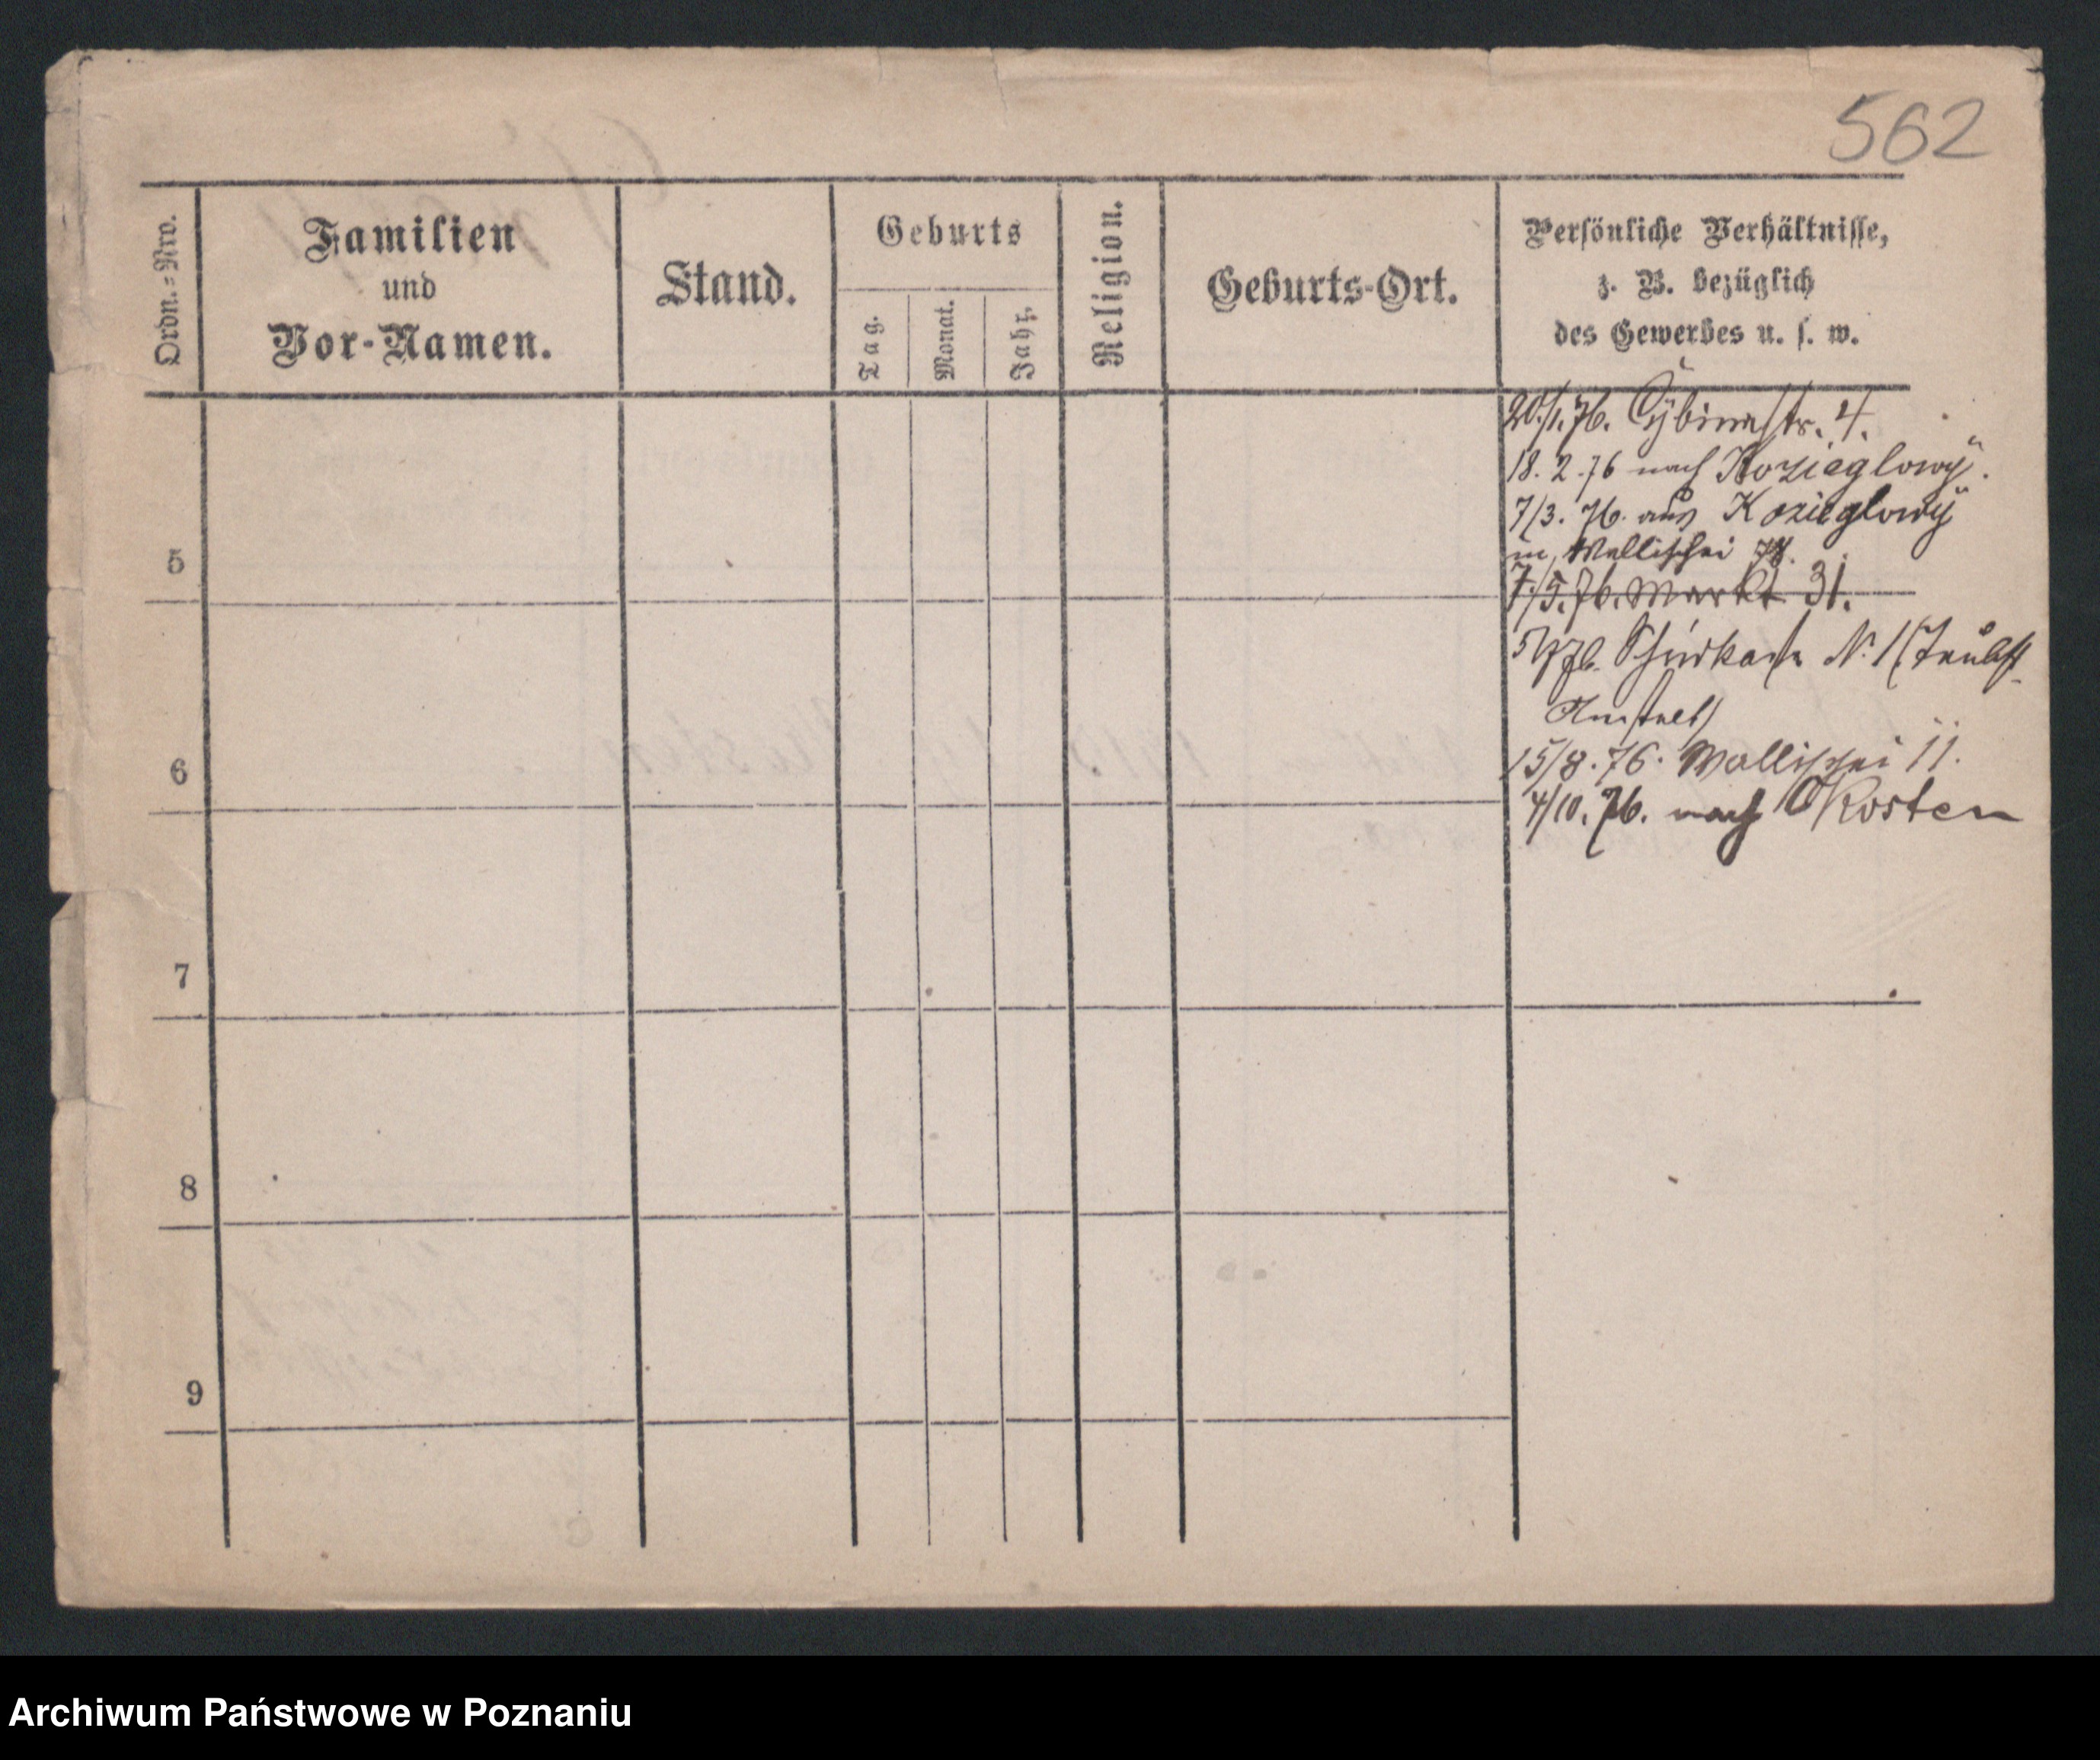 562
Ordn.=Nro.
Familien
und
Vor-Namen.
Stand.
Geburts
Tag.
Monat.
Jahr.
Religion.
Geburts-Ort.
Persönliche Verhältnisse,
z. B. bezüglich
des Gewerbes u. s. w.
20./1.76. Cybinastr. 4.
18. 2. 76 nach Kozieglowy.
7/3. 76. aus Kozieglowy
Wallischei
7./5.76. Markt 31.
N. 1 (Taubst
Anstalt)
15/8. 76. Wallischei 11.
4/10. 76. nach Kosten
5
6
7
8
9
Archiwum Państwowe w Poznaniu